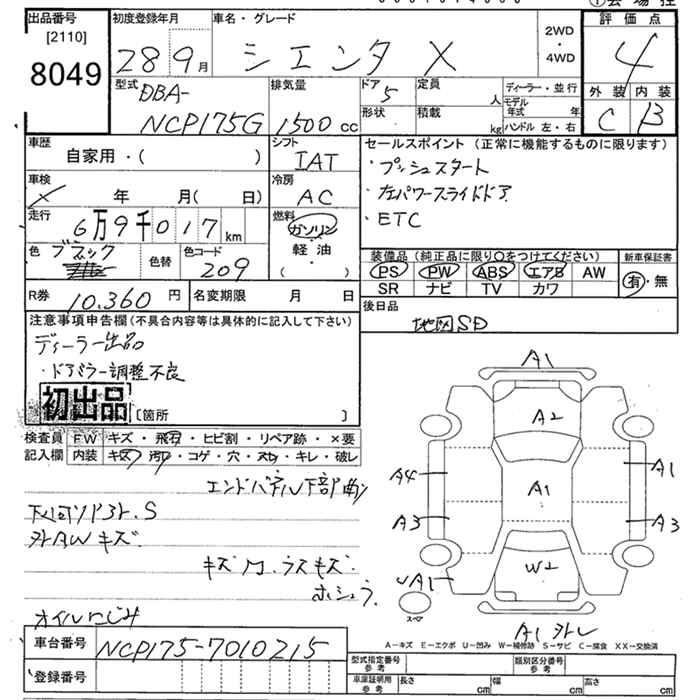 出品番号
[2110]
8049
初度登録年月
28 9月
車名・グレード
シエンタ X
2WD
・
4WD
評価点
4
外装 内装
C B
型式 DBA-
NCP175G
排気量
1500 cc
ドア 5
形状
定員 人
積載 kg
ディーラー・並行
モデル年式 年
ハンドル 左・右
車歴
自家用・( )
シフト
IAT
車検
× 年 月( 日)
冷房
AC
走行
6万9千017 km
燃料
ガソリン
・
軽油
・
( )
色 ブラック
色替
色コード
209
R券 10.360 円
名変期限 月 日
セールスポイント(正常に機能するものに限ります)
・プッシュスタート
・左パワースライドドア
・ETC
装備品(純正品に限り〇をつけてください)
PS PW ABS エアB AW
SR ナビ TV カワ
新車保証書
有・無
後日品
地図SD
注意事項申告欄(不具合内容等は具体的に記入して下さい)
ディーラー出品
・ドアミラー調整不良
初出品
[箇所 ]
検査員記入欄
FW キズ・飛石・ヒビ割・リペア跡・×要
内装 キズ・汚れ・コゲ・穴・スレ・キレ・破レ
エンドパネル下部曲り
外AWキズ.
オイルにじみ
車台番号 NCP175-7010215
登録番号
A1
A2
A4
A1
A1
A3
A3
A1
W2
スペア
A1 外レ
A-キズ E-エクボ U-凹み W-補修跡 S-サビ C-腐食 XX-交換済
型式指定番号
参考
類別区分番号
参考
車庫証明用
参考
長さ cm
幅 cm
高さ cm